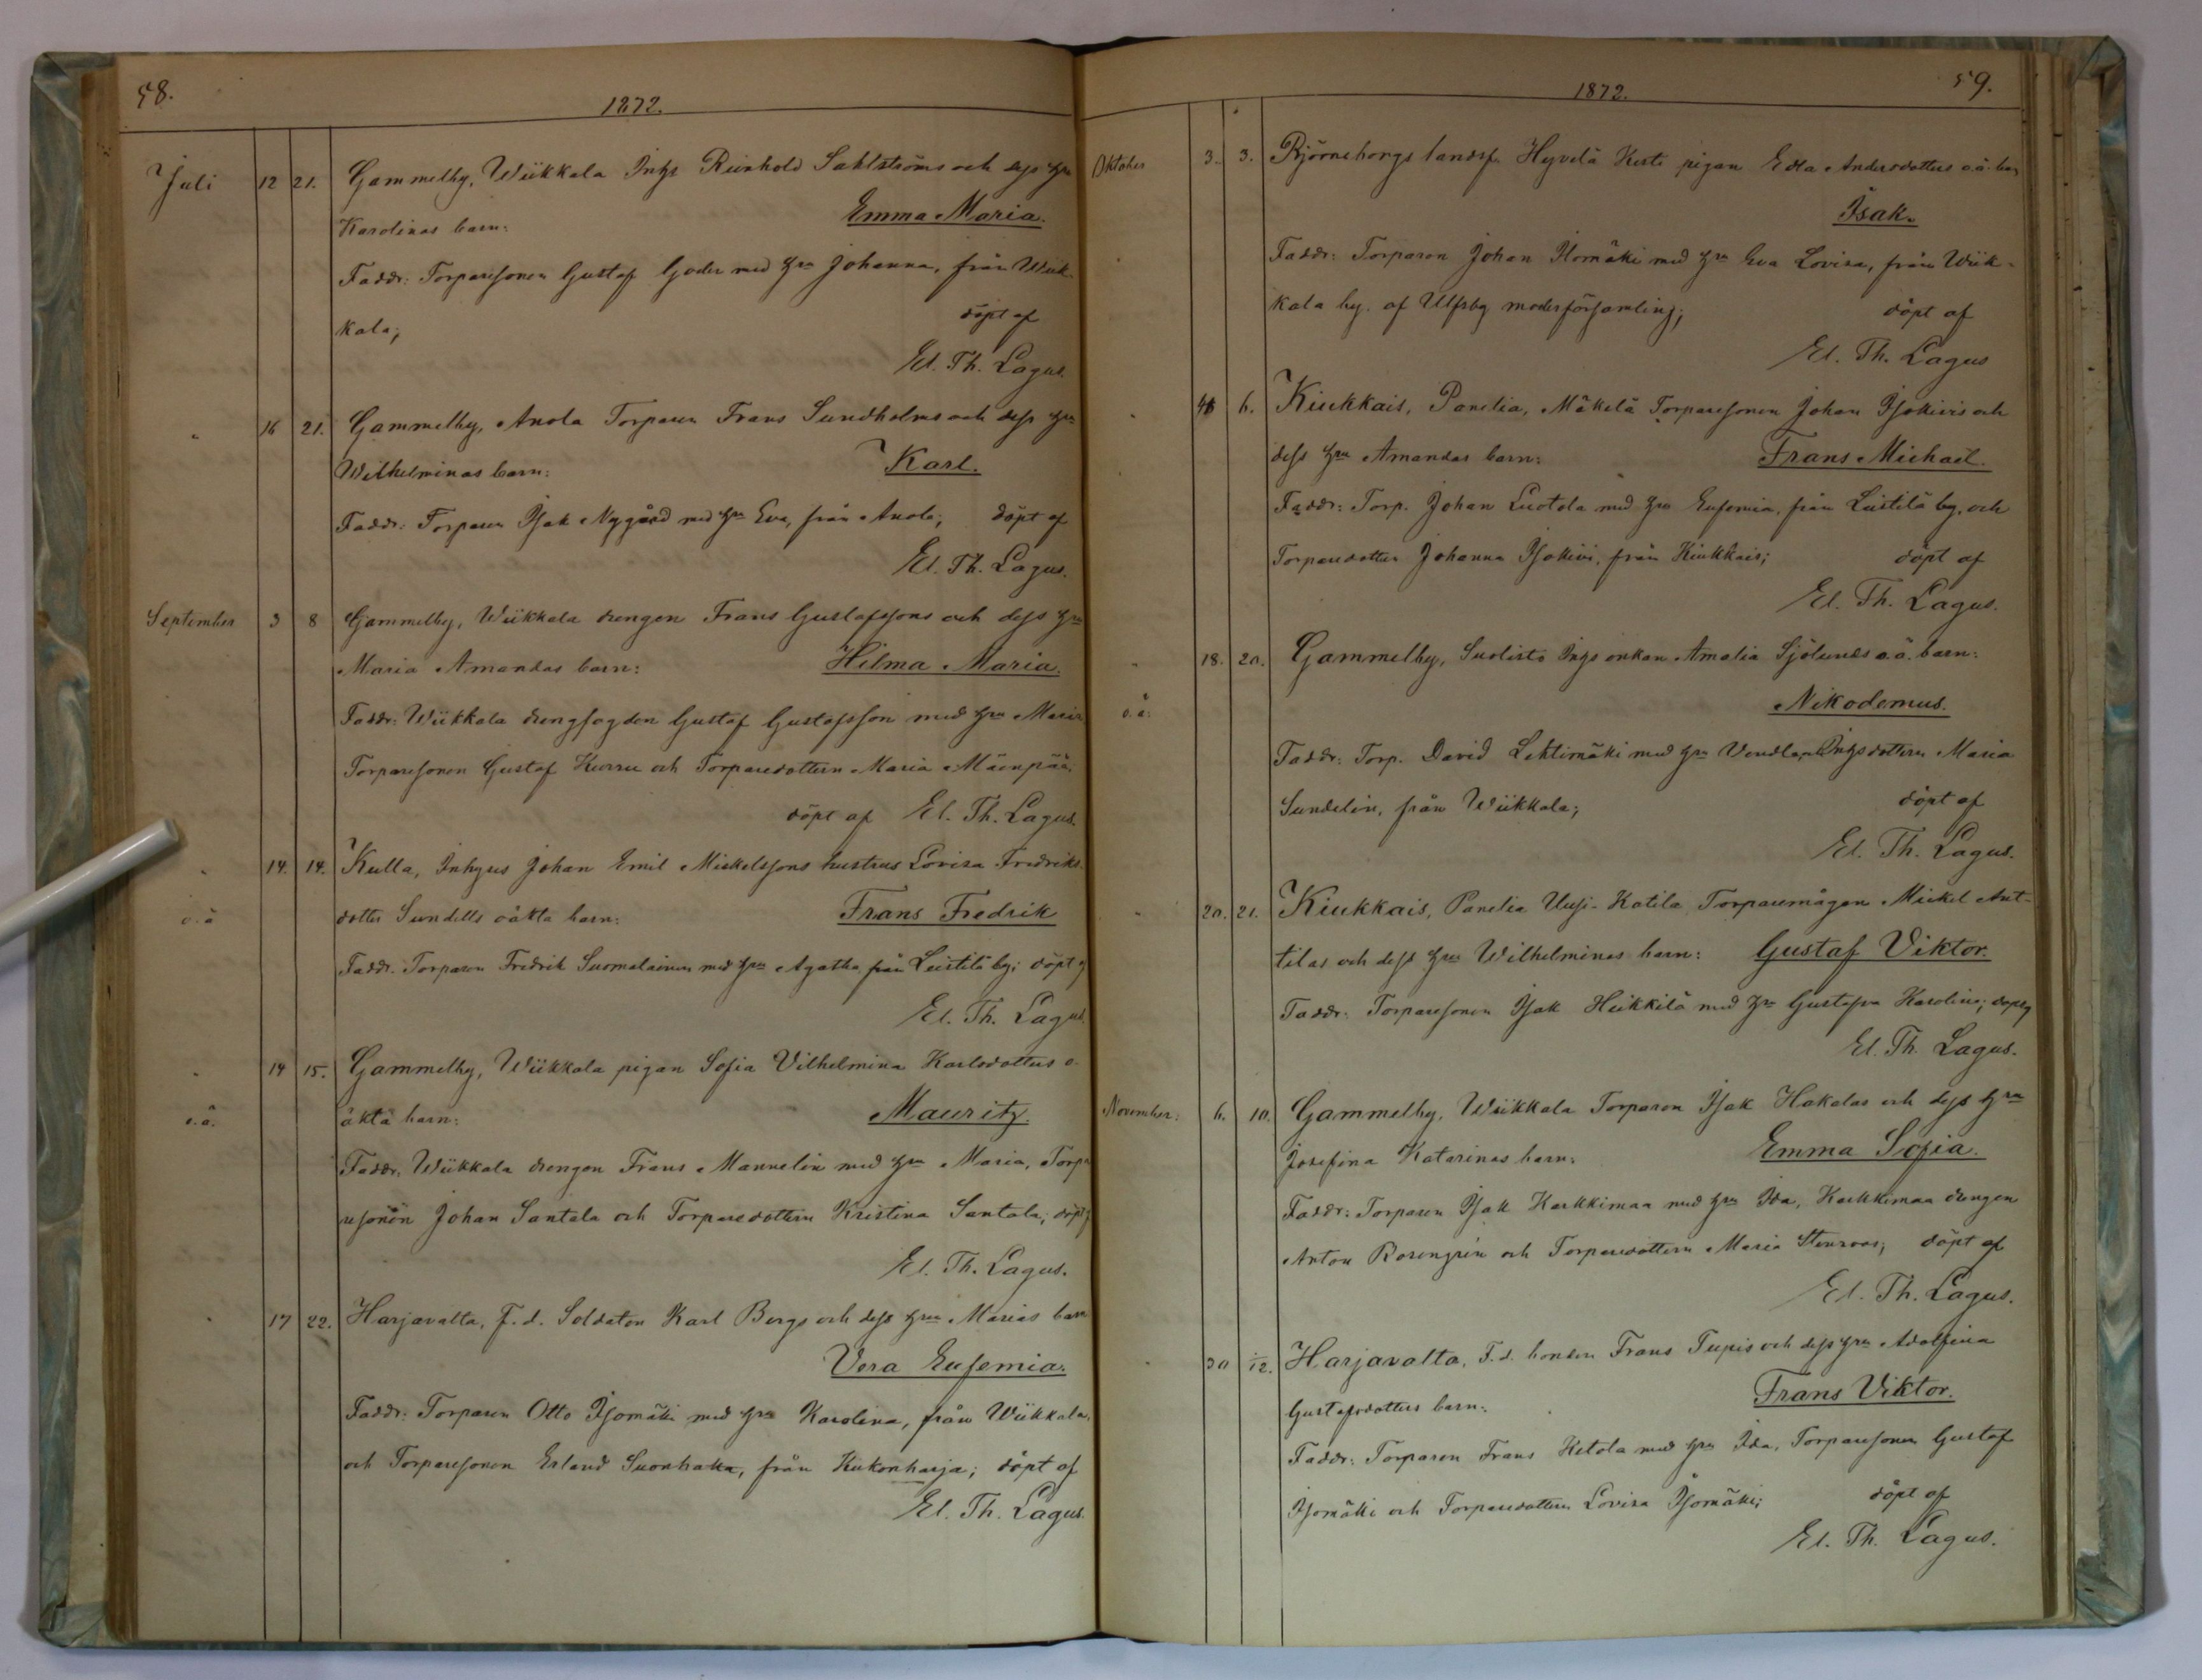 58.
1872.
Juli 12 21. Gammelby, Wiikkala Inhys Reinhold Sahlströms och dess hru
Karolinas barn: Emma Maria.
Faddr: Torparesonen Gustaf Goder med hru Johanna, från Wiik-
kala; döpt af
El. Th. Lagus.
" 16 21. Gammelby, Anola Torparen Frans Sundholms och dess hru
Wilhelminas barn: Karl.
Faddr: Torparen Isak Nygård med hru Eva, från Anola; döpt af
El. Th. Lagus.
September 3 8 Gammelby, Wiikkala drengen Frans Gustafssons och dess hru
Maria Amandas barn: Hilma Maria.
Faddr: Wiikkala drengfogden Gustaf Gustafsson med hru Maria
Torparesonen Gustaf Kurru och Torparedottern Maria Mäenpää.
döpt af El. Th. Lagus.
" 14. 14. Kulla, Inhyses Johan Emil Mickelssons hustrus Lovisa Fredriks-
o.ä dotter Sundells oäkta barn: Frans Fredrik
Faddr. Torparen Fredrik Suomalainen med hru Agatha från Leistilä by; döpt af
El. Th. Lagus.
" 14 15. Gammelby, Wiikkala pigan Sofia Vilhelmina Karlsdotters o-
o.ä. äkta barn: Mauritz.
Faddr, Wiikkala drengen Frans Mannelin med hru Maria, Torpa-
resonen Johan Santala och Torparedottern Kristina Santala; döpt af
El. Th. Lagus.
" 17 22. Harjavalta, F.d. Soldaten Karl Bergs och dess hru Marias barn
Vera Eufemia.
Faddr: Torparen Otto Isomäki med hru Karolina, från Wiikkala,
och Torparesonen Erland Suonhaka, från Kukonharja; döpt af
El. Th. Lagus.
1872. 59.
Oktober 3. 3. Björneborgs landsf. Hyvelä Kerti pigan Edla Andersdotters o.ä. barn
Isak.
Faddr: Torparen Johan Ilomäki med hru Eva Lovisa, från Wiik-
kala by. af Ulfsby moderförsamling; döpt af
El. Th. Lagus
" 6. Kiukkais, Panelia, Mäkelä Torparesonen Johan Isokivis och
dess hru Amandas barn: Frans Michael.
Faddr: Torp. Johan Luotola med hru Eufemia, från Leistilä by, och
Torparedotter Johanna Isokivi, från Kiukkais; döpt af
El. Th. Lagus.
" 18. 20. Gammelby, Suolisto Inhys enkan Amalia Sjölunds o.ä. barn:
o.ä: Nikodemus.
Faddr: Torp. David Lehtimäki med hru Vendla, Inhysdottern Maria
Sundelin, från Wiikkala; döpt af
El. Th. Lagus.
" 20. 21. Kiukkais, Panelia Uusi-Katila Torparemågen Mickel Ant-
tilas och dess hru Wilhelminas barn: Gustaf Viktor.
Faddr: Torparesonen Isak Heikkilä med hru Gustafva Karolina; döpt af
El. Th. Lagus.
November: 6. 10. Gammelby, Wiikkala Torparen Isak Hakalas och dess hru
Josefina Katarinas barn: Emma Sofia.
Faddr: Torparen Isak Karkkimaa med hru Ida, Karkkimaa drengen
Anton Rosengrén och Torparedottern Maria Stenroos; döpt af
El. Th. Lagus.
" 30 1/12. Harjavalta, F.d. bonden Frans Tupis och dess hru Adolfina
Gustafsdotters barn: Frans Viktor.
Faddr: Torparen Frans Ketola med hru Ida, Torparesonen Gustaf
Isomäki och Torparedottern Lovisa Isomäki; döpt af
El. Th. Lagus.